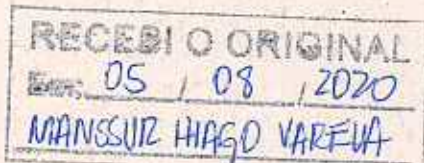 RECEBI O ORIGINAL
Em: 05 / 08 / 2020
MANSSUR HIAGO VARELA